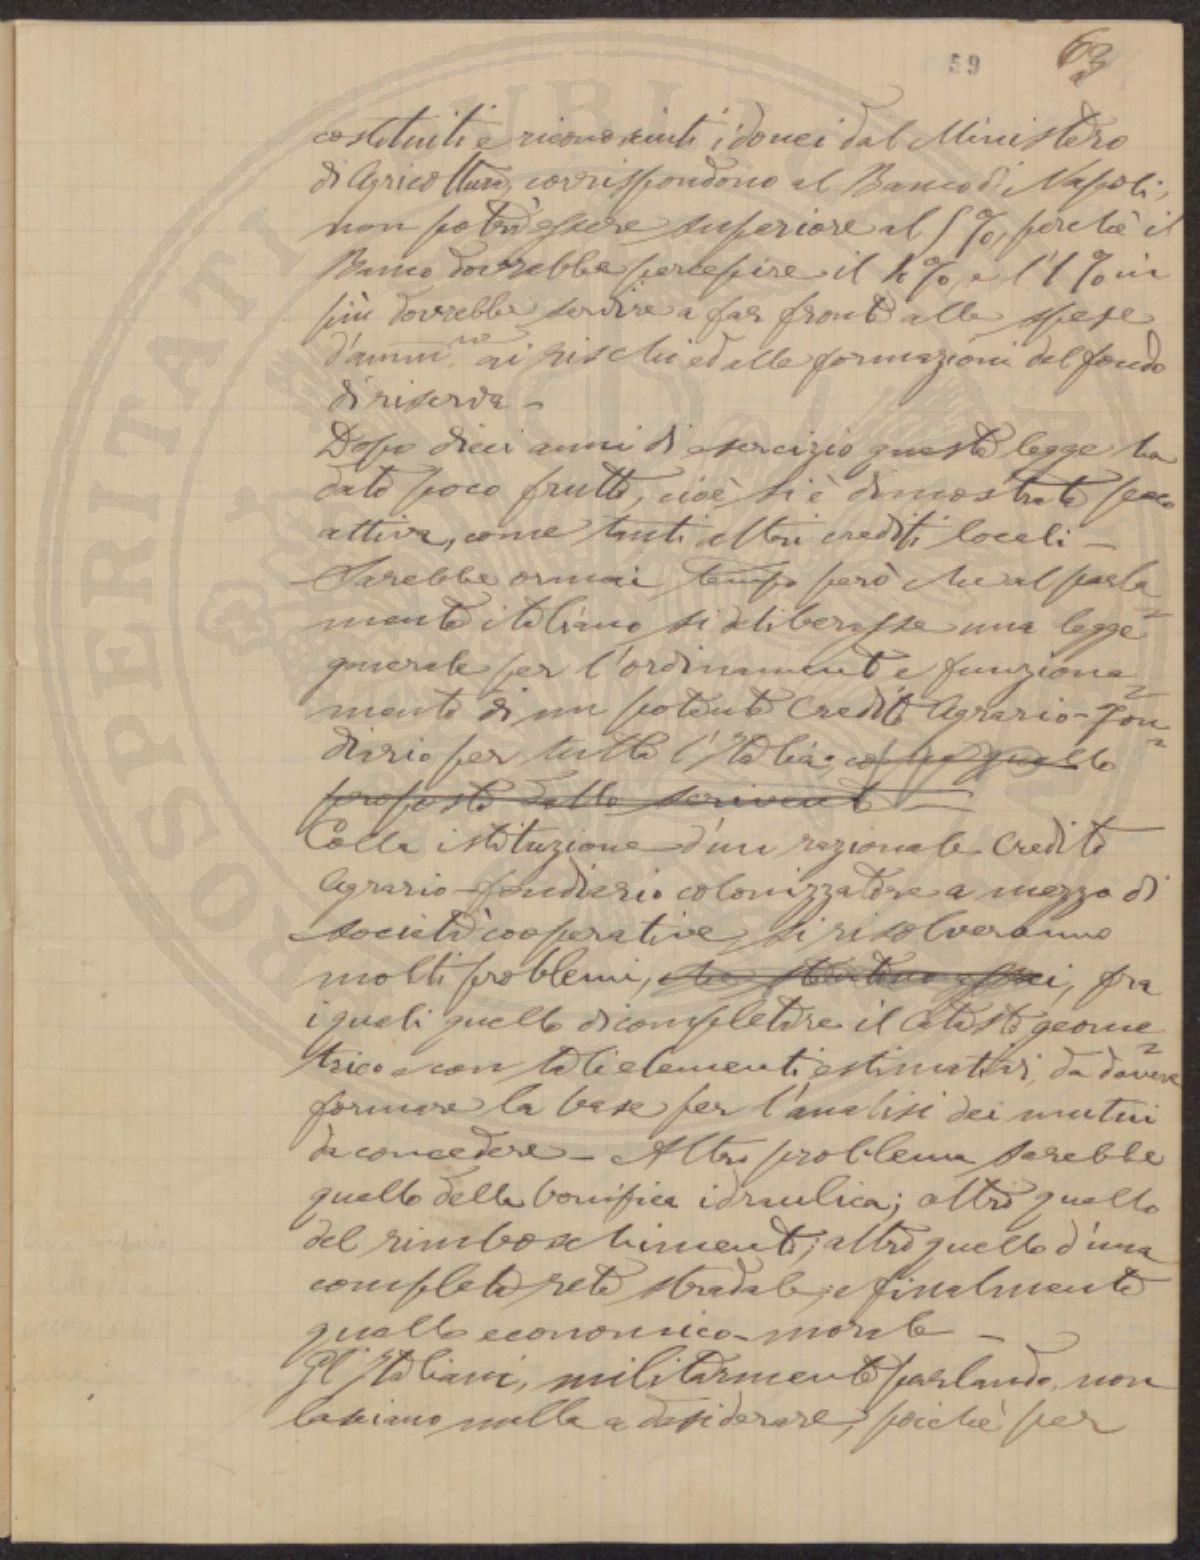 59 63
costituiti e riconosciuti idonei dal Ministero
di Agricoltura, corrispondono al Banco di Napoli,
non potrà essere superiore al 5 %, perchè il
Banco dovrebbe percepire il 4 %, e l'1 % in
più dovrebbe servire a far fronte alle spese
d'amm.ne ai rischi ed alle formazioni del fondo
di riserva –
Dopo dieci anni di esercizio questa legge ha
dato poco frutto, cioè si è dimostrata poco
attiva, come tanti altri crediti locali –
Sarebbe ormai tempo però che al parla
mento italiano si deliberasse una legge
generale per l'ordinamento e funziona
mento di un potente Credito Agrario-Fon
diario per tutta l'Italia; quello
proposto dallo scrivente –
Colla istituzione d'un razionale Credito
Agrario-fondiario colonizzatore a mezzo di
società cooperative, si risolveranno
molti problemi, fra
i quali quello di completare il Catasto geome
trico e con tali elementi estimativi, da dovere
formare la base per l'analisi dei mutui
da concedere – Altro problema sarebbe
quello della bonifica idraulica; altro quello
del rimboschimento; altro quello d'una
completa rete stradale; e finalmente
quello economico-morale –
Gl'Italiani, militarmente parlando, non
lasciano nulla a desiderare, poichè per